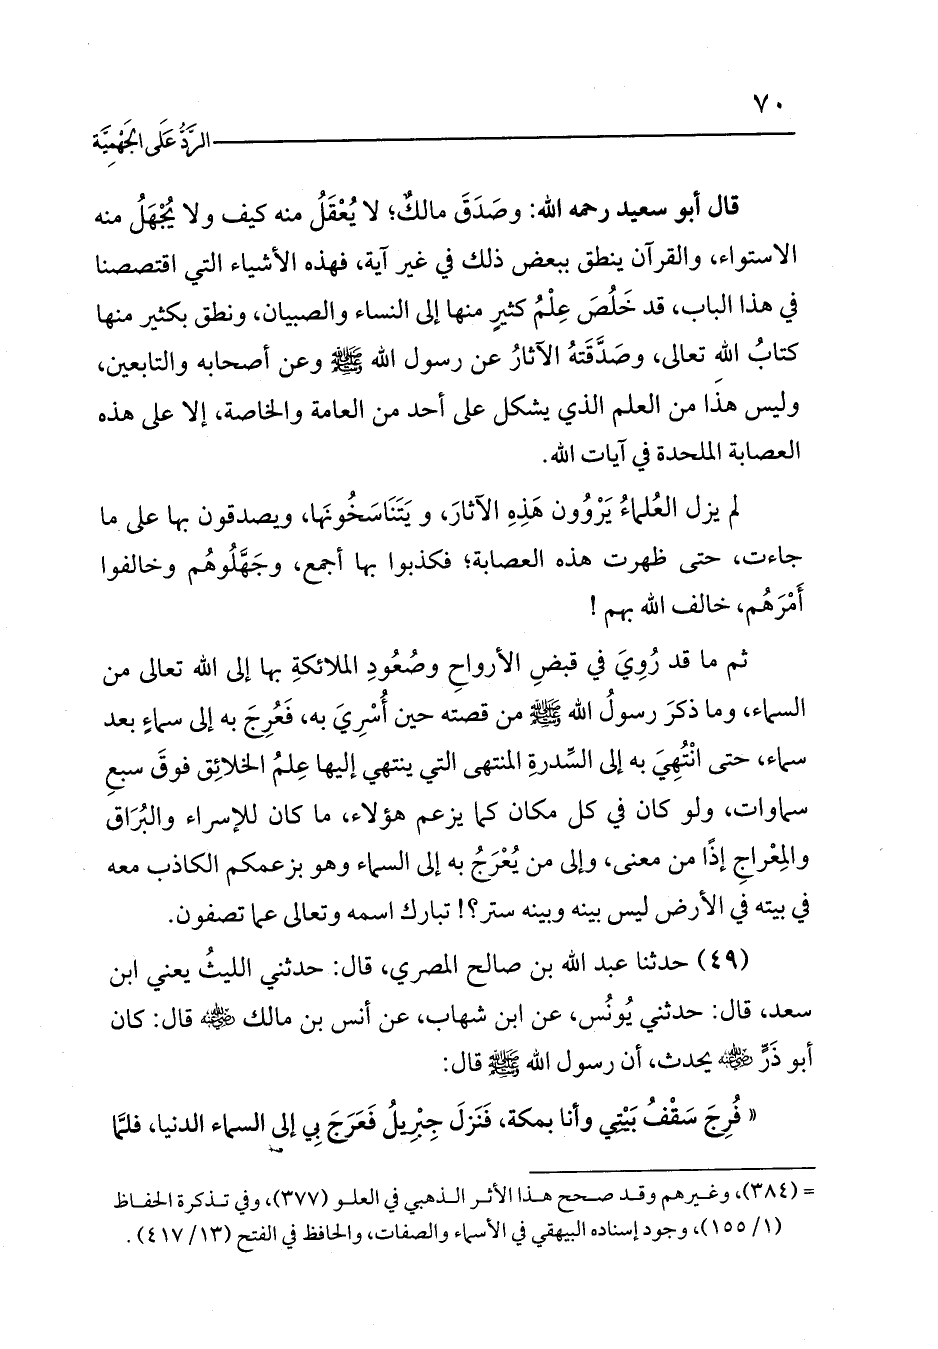 ٧٠
الرَّدُّ عَلَى الجَهْمِيَّة
قال أبو سعيد رحمه الله: وصَدَقَ مالكٌ؛ لا يُعْقَلُ منه كيف ولا يُجْهَلُ منه
الاستواء، والقرآن ينطق ببعض ذلك في غير آية، فهذه الأشياء التي اقتصصنا
في هذا الباب، قد خَلُصَ عِلْمُ كثيرٍ منها إلى النساء والصبيان، ونطق بكثير منها
كتابُ الله تعالى، وصَدَّقَتهُ الآثارُ عن رسول الله ﷺ وعن أصحابه والتابعين،
وليس هذا من العلم الذي يشكل على أحد من العامة والخاصة، إلا على هذه
العصابة الملحدة في آيات الله.
لم يزل العُلماءُ يَرْوُون هَذِهِ الآثارَ، و يَتَنَاسَخُونَها، ويصدقون بها على ما
جاءت، حتى ظهرت هذه العصابة؛ فكذبوا بها أجمع، وجَهَّلُوهُم وخالفوا
أَمْرَهُم، خالف الله بهم !
ثم ما قد رُوِيَ في قبضِ الأرواحِ وصُعُودِ الملائكةِ بها إلى الله تعالى من
السماء، وما ذكرَ رسولُ الله ﷺ من قصته حين أُسْرِيَ به، فَعُرِجَ به إلى سماءٍ بعد
سماء، حتى انْتُهِيَ به إلى السِّدرةِ المنتهى التي ينتهي إليها عِلمُ الخلائِق فوقَ سبعِ
سماوات، ولو كان في كل مكان كما يزعم هؤلاء، ما كان للإسراء والبُرَاق
والمِعْراجِ إذًا من معنى، وإلى من يُعْرَجُ به إلى السماء وهو بزعمكم الكاذب معه
في بيته في الأرض ليس بينه وبينه ستر؟! تبارك اسمه وتعالى عما تصفون.
(٤٩) حدثنا عبد الله بن صالح المصري، قال: حدثني الليثُ يعني ابن
سعد، قال: حدثني يُونُس، عن ابن شهاب، عن أنس بن مالك رضي الله عنه قال: كان
أبو ذَرٍّ رضي الله عنه يحدث، أن رسول الله ﷺ قال:
« فُرِجَ سَقْفُ بَيْتِي وأنا بمكة، فَنَزَلَ جِبْرِيلُ فَعَرَجَ بِي إلى السماء الدنيا، فلمَّا
= (٣٨٤)، وغيرهم وقد صحح هذا الأثر الذهبي في العلو (٣٧٧)، وفي تذكرة الحفاظ
(١/ ١٥٥)، وجود إسناده البيهقي في الأسماء والصفات، والحافظ في الفتح (١٣/ ٤١٧).